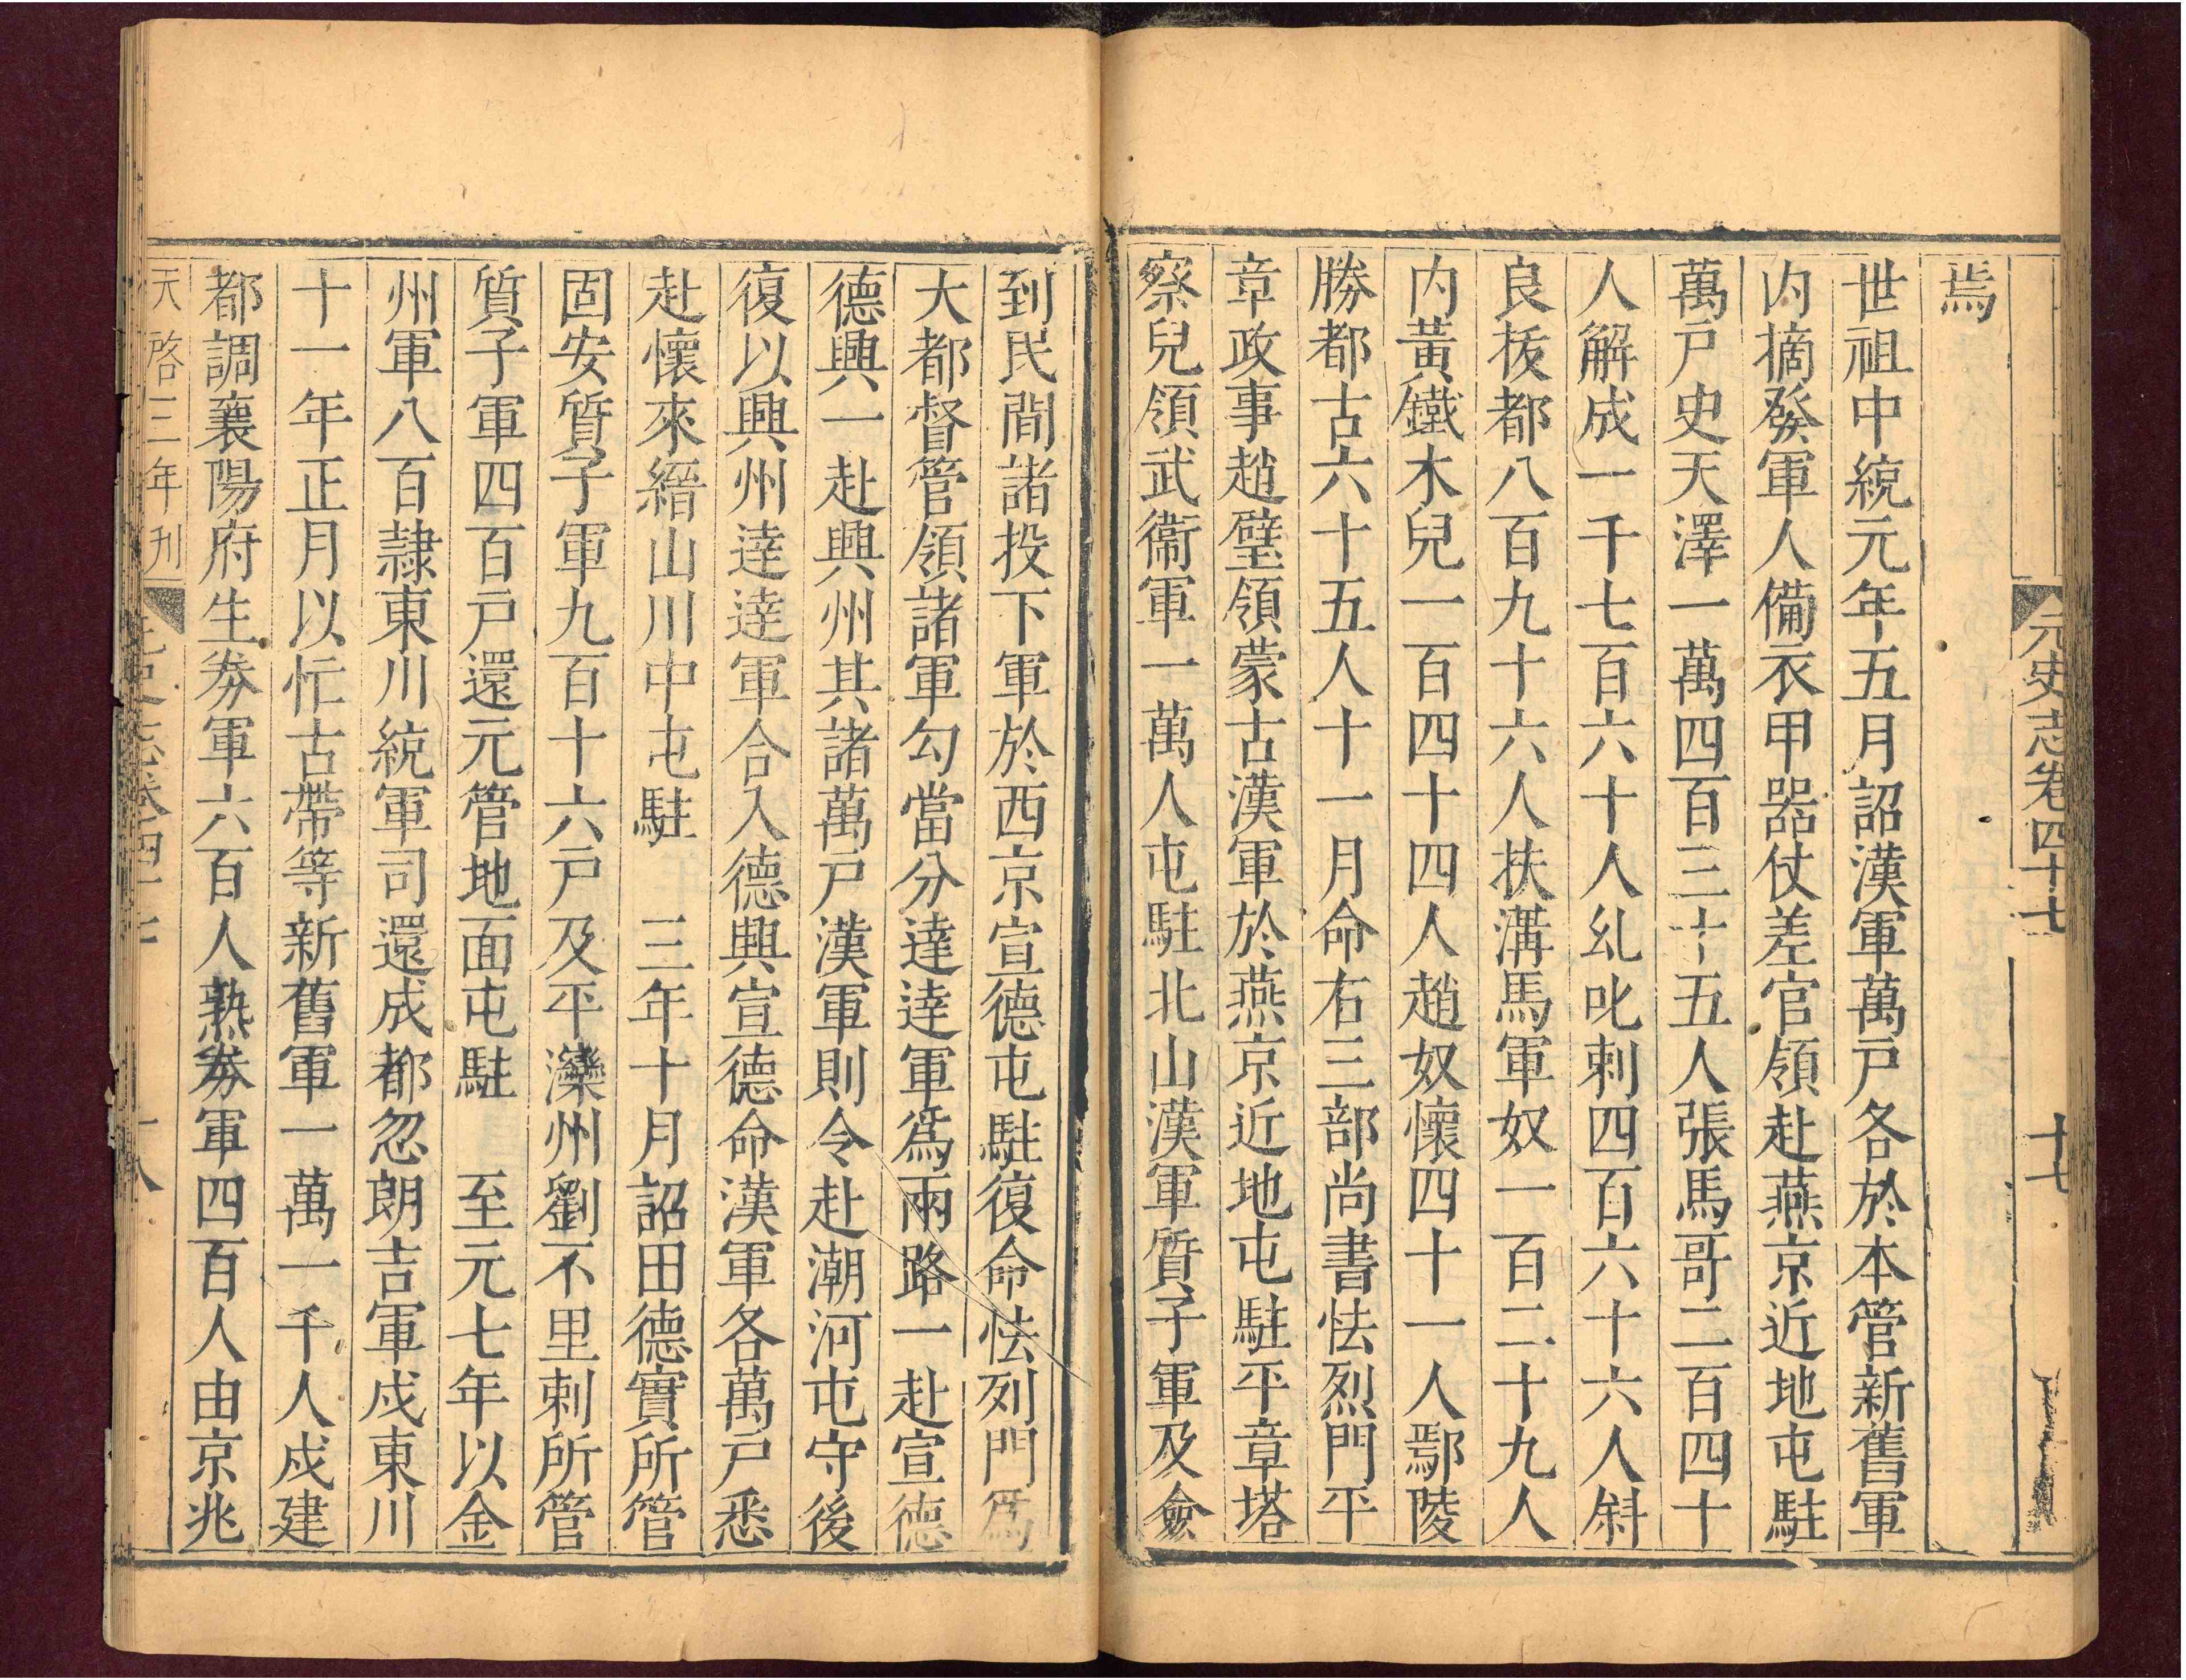 元史志卷四十七 十七
焉
世祖中統元年五月詔漢軍萬戸各於本管新舊軍
内摘發軍人備衣甲器仗差官領赴燕京近地屯駐
萬戸史天澤一萬四百三十五人張馬哥二百四十
人解成一千七百六十人乣叱剌四百六十六人斜
良拔都八百九十六人扶溝馬軍奴一百二十九人
内黃鐵木兒一百四十四人趙奴懷四十一人鄢陵
勝都古六十五人十一月命右三部尚書怯烈門平
章政事趙璧領蒙古漢軍於燕京近地屯駐平章塔
察兒領武衞軍一萬人屯駐北山漢軍質子軍及僉
到民間諸投下軍於西京宣德屯駐復命怯列門爲
大都督管領諸軍勾當分達達軍爲兩路一赴宣德
德興一赴興州其諸萬戸漢軍則令赴潮河屯守後
復以興州達達軍合入德興宣德命漢軍各萬戸悉
赴懷來縉山川中屯駐　三年十月詔田德實所管
固安質子軍九百十六戸及平灤州劉不里剌所管
質子軍四百戸還元管地面屯駐　至元七年以金
州軍八百隷東川統軍司還成都忽朗吉軍戍東川
十一年正月以忙古帶等新舊軍一萬一千人戍建
都調襄陽府生劵軍六百人熟劵軍四百人由京兆
天啓三年刋 元史志卷四十七 十八